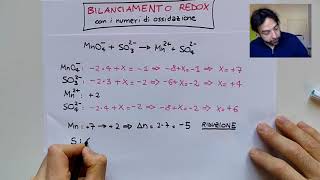 BILANCIAMENTO REDOX
con i numeri di ossidazione
MnO₄⁻ + SO₃²⁻ → Mn²⁺ + SO₄²⁻
MnO₄⁻ -2·4+X=-1 ⇒ -8+X=-1 ⇒ X=+7
SO₃²⁻ -2·3+X=-2 ⇒ -6+X=-2 ⇒ X=+4
Mn²⁺: +2
SO₄²⁻: -2·4+X=-2 ⇒ -8+X=-2 ⇒ X=+6
Mn: +7 → +2 ⇒ Δn=2-7=-5 RIDUZIONE
S: